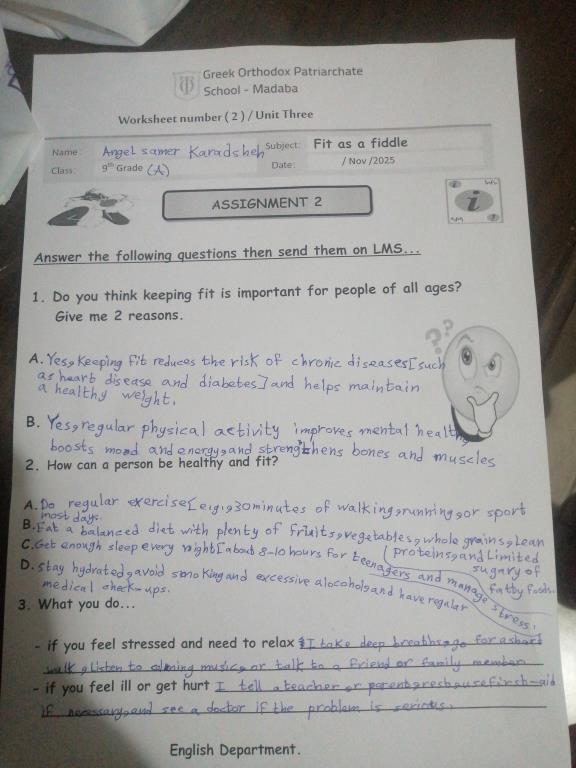 Greek Orthodox Patriarchate
School - Madaba
Worksheet number ( 2 ) / Unit Three
Name: Angel samer Karadsheh Subject: Fit as a fiddle
Class: 9th Grade (A) Date: / Nov /2025
ASSIGNMENT 2
Answer the following questions then send them on LMS...
1. Do you think keeping fit is important for people of all ages?
Give me 2 reasons.
A. Yes, Keeping fit reduces the risk of chronic diseases [such
as heart disease and diabetes] and helps maintain
a healthy weight.
B. Yes, regular physical activity improves mental health,
boosts mood and energy, and strengthens bones and muscles
2. How can a person be healthy and fit?
A. Do regular exercise [e.g., 30 minutes of walking, running, or sport
most days.
B. Eat a balanced diet with plenty of fruits, vegetables, whole grains, Lean
proteins, and Limited
sugary of
fatty foods.
C. Get enough sleep every night [about 8-10 hours for teenagers and manage stress.
D. Stay hydrated, avoid smoking and excessive alocohol, and have regular
medical check-ups.
3. What you do...
- if you feel stressed and need to relax I take deep breaths, go for a short
walk, Listen to calming music, or talk to a friend or family member
- if you feel ill or get hurt I tell a teacher or parent, rest, use first-aid
if necessary, and see a doctor if the problem is serious.
English Department.